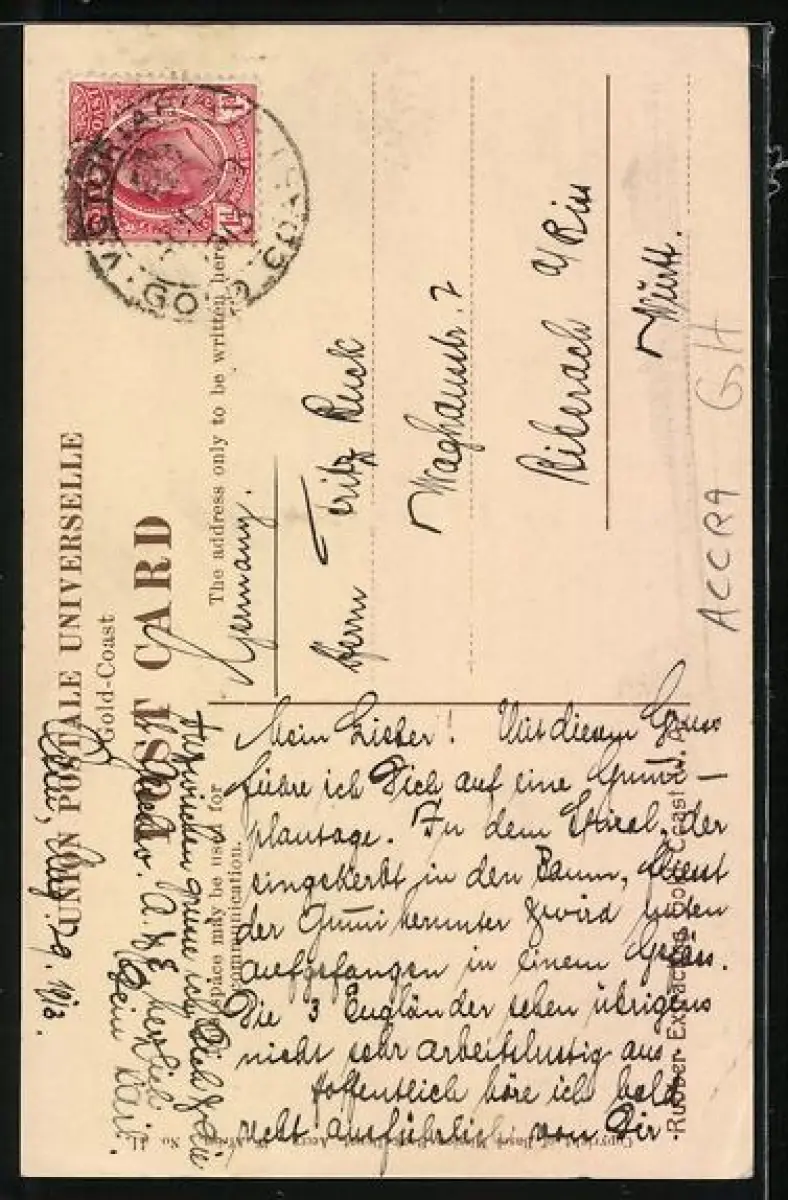 UNION POSTALE UNIVERSELLE
Gold-Coast
POST CARD
space may be used for
communication.
The address only to be written here
VICTORIA
GOLD COAST
Germany.
Herrn Fritz
Waghausstr. 2
Biberach a/Riss
Württ.
ACCRA GH
Mein Lieber! Mit diesem Gruss
führe ich Dich auf eine Gummi-
plantage. In dem Striel, der
eingekerbt in den Baum, fliesst
der Gummi herunter & wird unten
aufgefangen in einem Gefäss.
Die 3 Engländer sehen übrigens
nicht sehr arbeitslustig aus.
Hoffentlich höre ich bald
recht ausführlich von Dir.
Inzwischen grüsse ich Dich & die
A. & E. herzlich
Dein
Aug. 29. 1913.
Rubber Extracting, Gold Coast
No. 11.